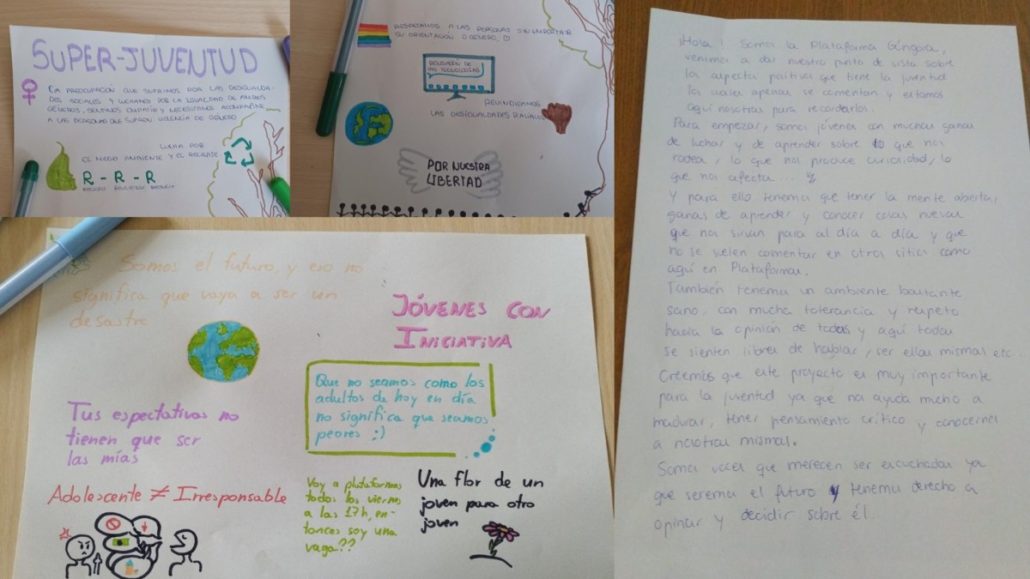 SUPER-JUVENTUD
LA PREOCUPACIÓN QUE SUFRIMOS POR LAS DESIGUALDA-
DES SOCIALES Y LUCHAMOS POR LA IGUALDAD DE AMBOS
GÉNEROS,
A LAS PERSONAS QUE SUFREN VIOLENCIA DE GÉNERO
LUCHA POR
EL MEDIO AMBIENTE Y EL RECICLAJE
R - R - R
RESPETAMOS A LAS PERSONAS SIN IMPORTAR
SU ORIENTACIÓN O GÉNERO
EDUCACIÓN EN
LAS TECNOLOGÍAS
REIVINDICAMOS
LAS DESIGUALDADES RACIALES
POR NUESTRA
LIBERTAD
Somos el futuro, y eso no
significa que vaya a ser un
desastre
JÓVENES CON
INICIATIVA
Que no seamos como los
adultos de hoy en día
no significa que seamos
peores :)
Tus espectativas no
tienen que ser
las mías
Adolescente ≠ Irresponsable
Voy a plataformas
todos los viernes
a las 17h, en-
tonces soy una
vaga??
Una flor de un
joven para otro
joven
¡Hola! Somos la Plataforma Góngora,
venimos a dar nuestro punto de vista sobre
los aspectos positivos que tiene la juventud
los cuales apenas se comentan y estamos
aquí nosotras para recordarlos.
Para empezar, somos jóvenes con muchas ganas
de luchar y de aprender sobre lo que nos
rodea, lo que nos produce curiosidad, lo
que nos afecta...
Y para ello tenemos que tener la mente abierta,
ganas de aprender y conocer cosas nuevas
que nos sirvan para el día a día y que
no se suelen comentar en otros sitios como
aquí en Plataformas.
También tenemos un ambiente bastante
sano, con mucha tolerancia y respeto
hacia la opinión de todas y aquí todas
se sienten libres de hablar, ser ellas mismas etc.
Creemos que este proyecto es muy importante
para la juventud ya que nos ayuda mucho a
madurar, tener pensamiento crítico y conocernos
a nosotras mismas.
Somos voces que merecen ser escuchadas ya
que seremos el futuro y tenemos derecho a
opinar y decidir sobre él.